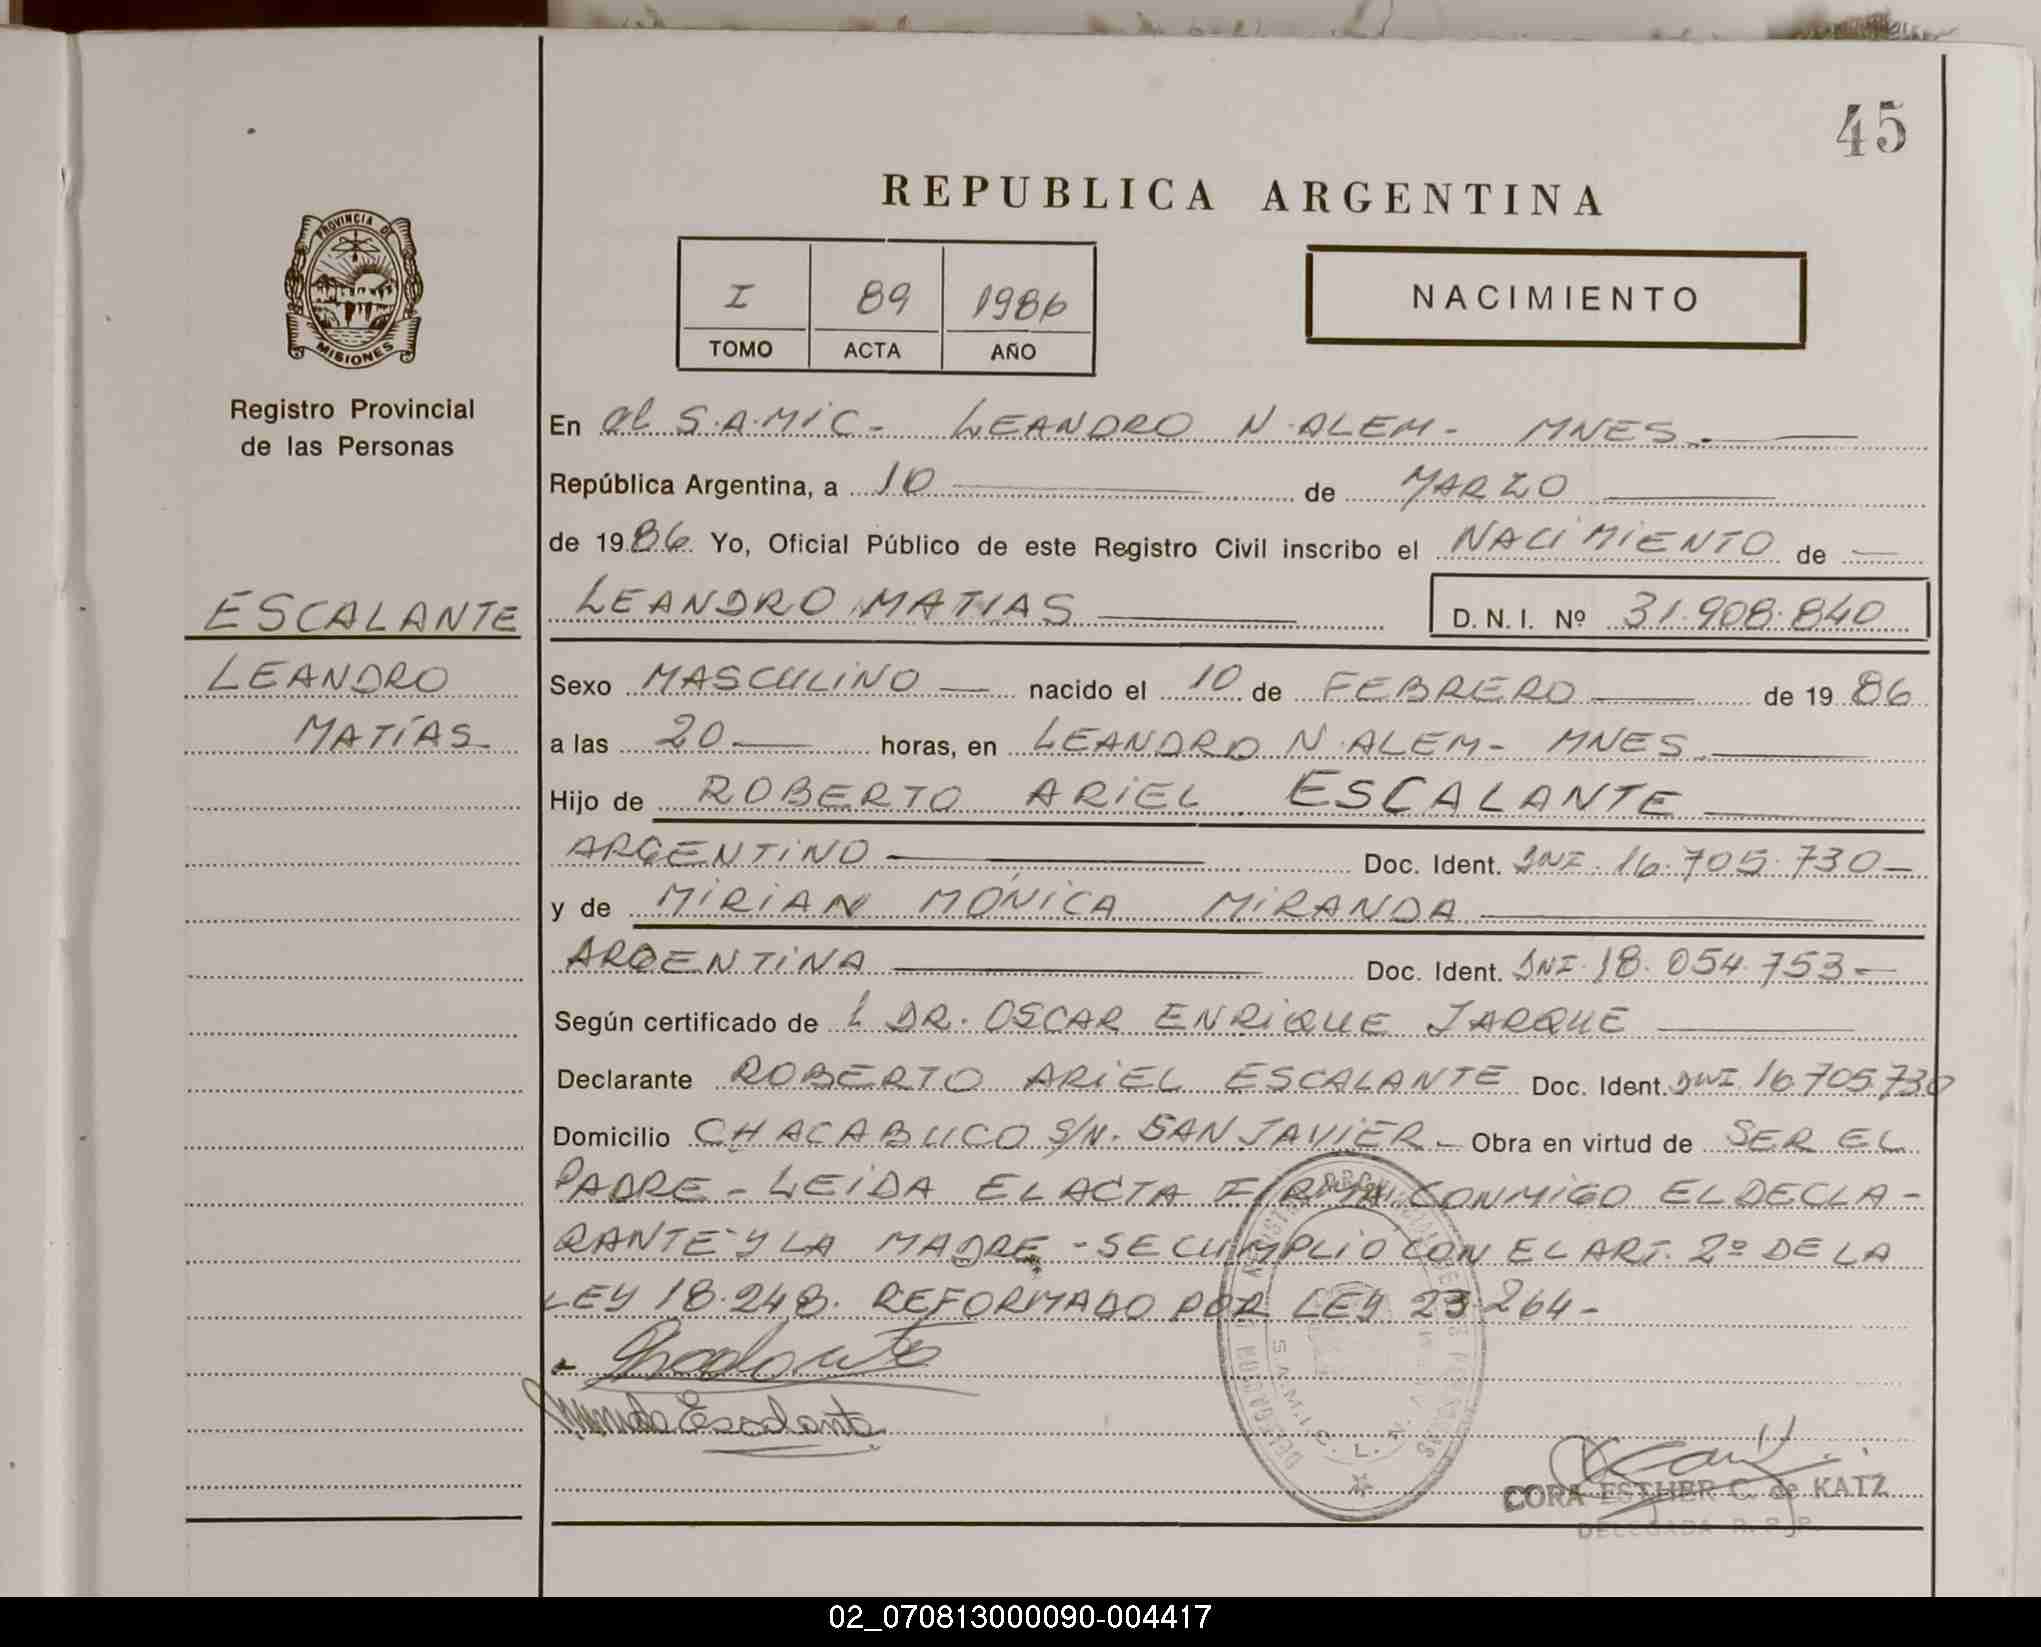 45
REPUBLICA ARGENTINA
I 89 1986
TOMO ACTA AÑO
NACIMIENTO
PROVINCIA DE
MISIONES
Registro Provincial
de las Personas
ESCALANTE
LEANDRO
MATÍAS
En el S.A.MiC- LEANDRO N. ALEM- MNES.
República Argentina, a 10 de MARZO
de 1986 Yo, Oficial Público de este Registro Civil inscribo el NACIMIENTO de
LEANDRO MATIAS D. N. I. Nº 31.908.840
Sexo MASCULINO nacido el 10 de FEBRERO de 1986
a las 20 horas, en LEANDRO N. ALEM- MNES
Hijo de ROBERTO ARIEL ESCALANTE
ARGENTINO Doc. Ident. DNI. 16.705.730-
y de MIRIAN MÓNICA MIRANDA
ARGENTINA Doc. Ident. DNI. 18.054.753-
Según certificado de L DR. OSCAR ENRIQUE JARQUE
Declarante ROBERTO ARIEL ESCALANTE Doc. Ident. DNI 16.705.730
Domicilio CHACABUCO S/N. SAN JAVIER- Obra en virtud de SER EL
PADRE- LEIDA EL ACTA FIRMA CONMIGO EL DECLA-
RANTE Y LA MADRE -SE CUMPLIO CON EL ART. 2º DE LA
LEY 18.248. REFORMADO POR LEY 23.264-
Escalante
Miranda Escalante
S.A.M.I.C. L. N.
CORA ESTHER C. de KATZ
DELEGADA R. P. P.
02_070813000090-004417